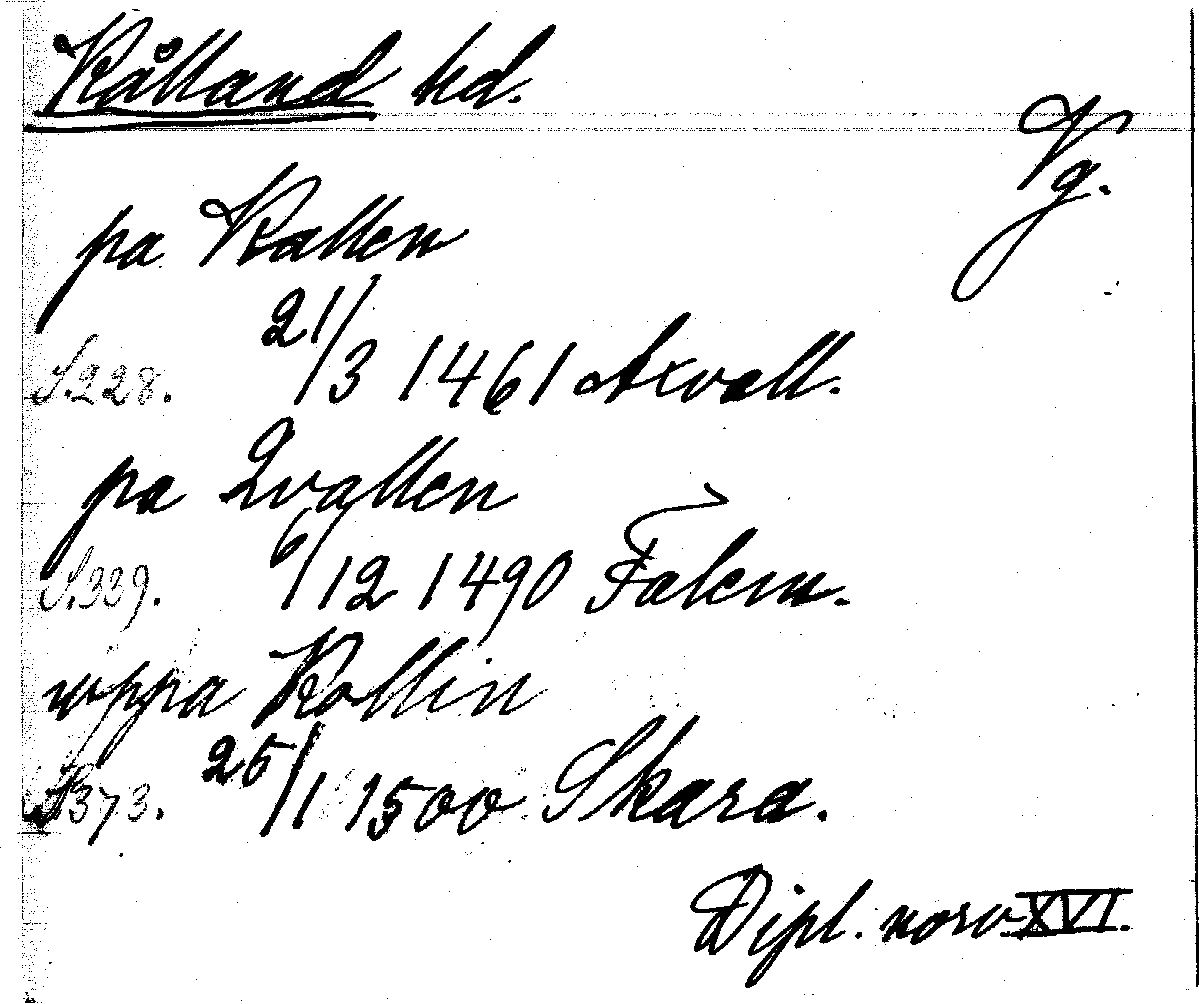 Kålland hd.
Vg.
pa Kallen
S. 228. 21/3 1461 Axvall.
pa Qvallen
S. 339. 6/12 1490 Falem.
uppa Kollin
S. 373. 25/1 1500 Skara.
Dipl. norv XVI.